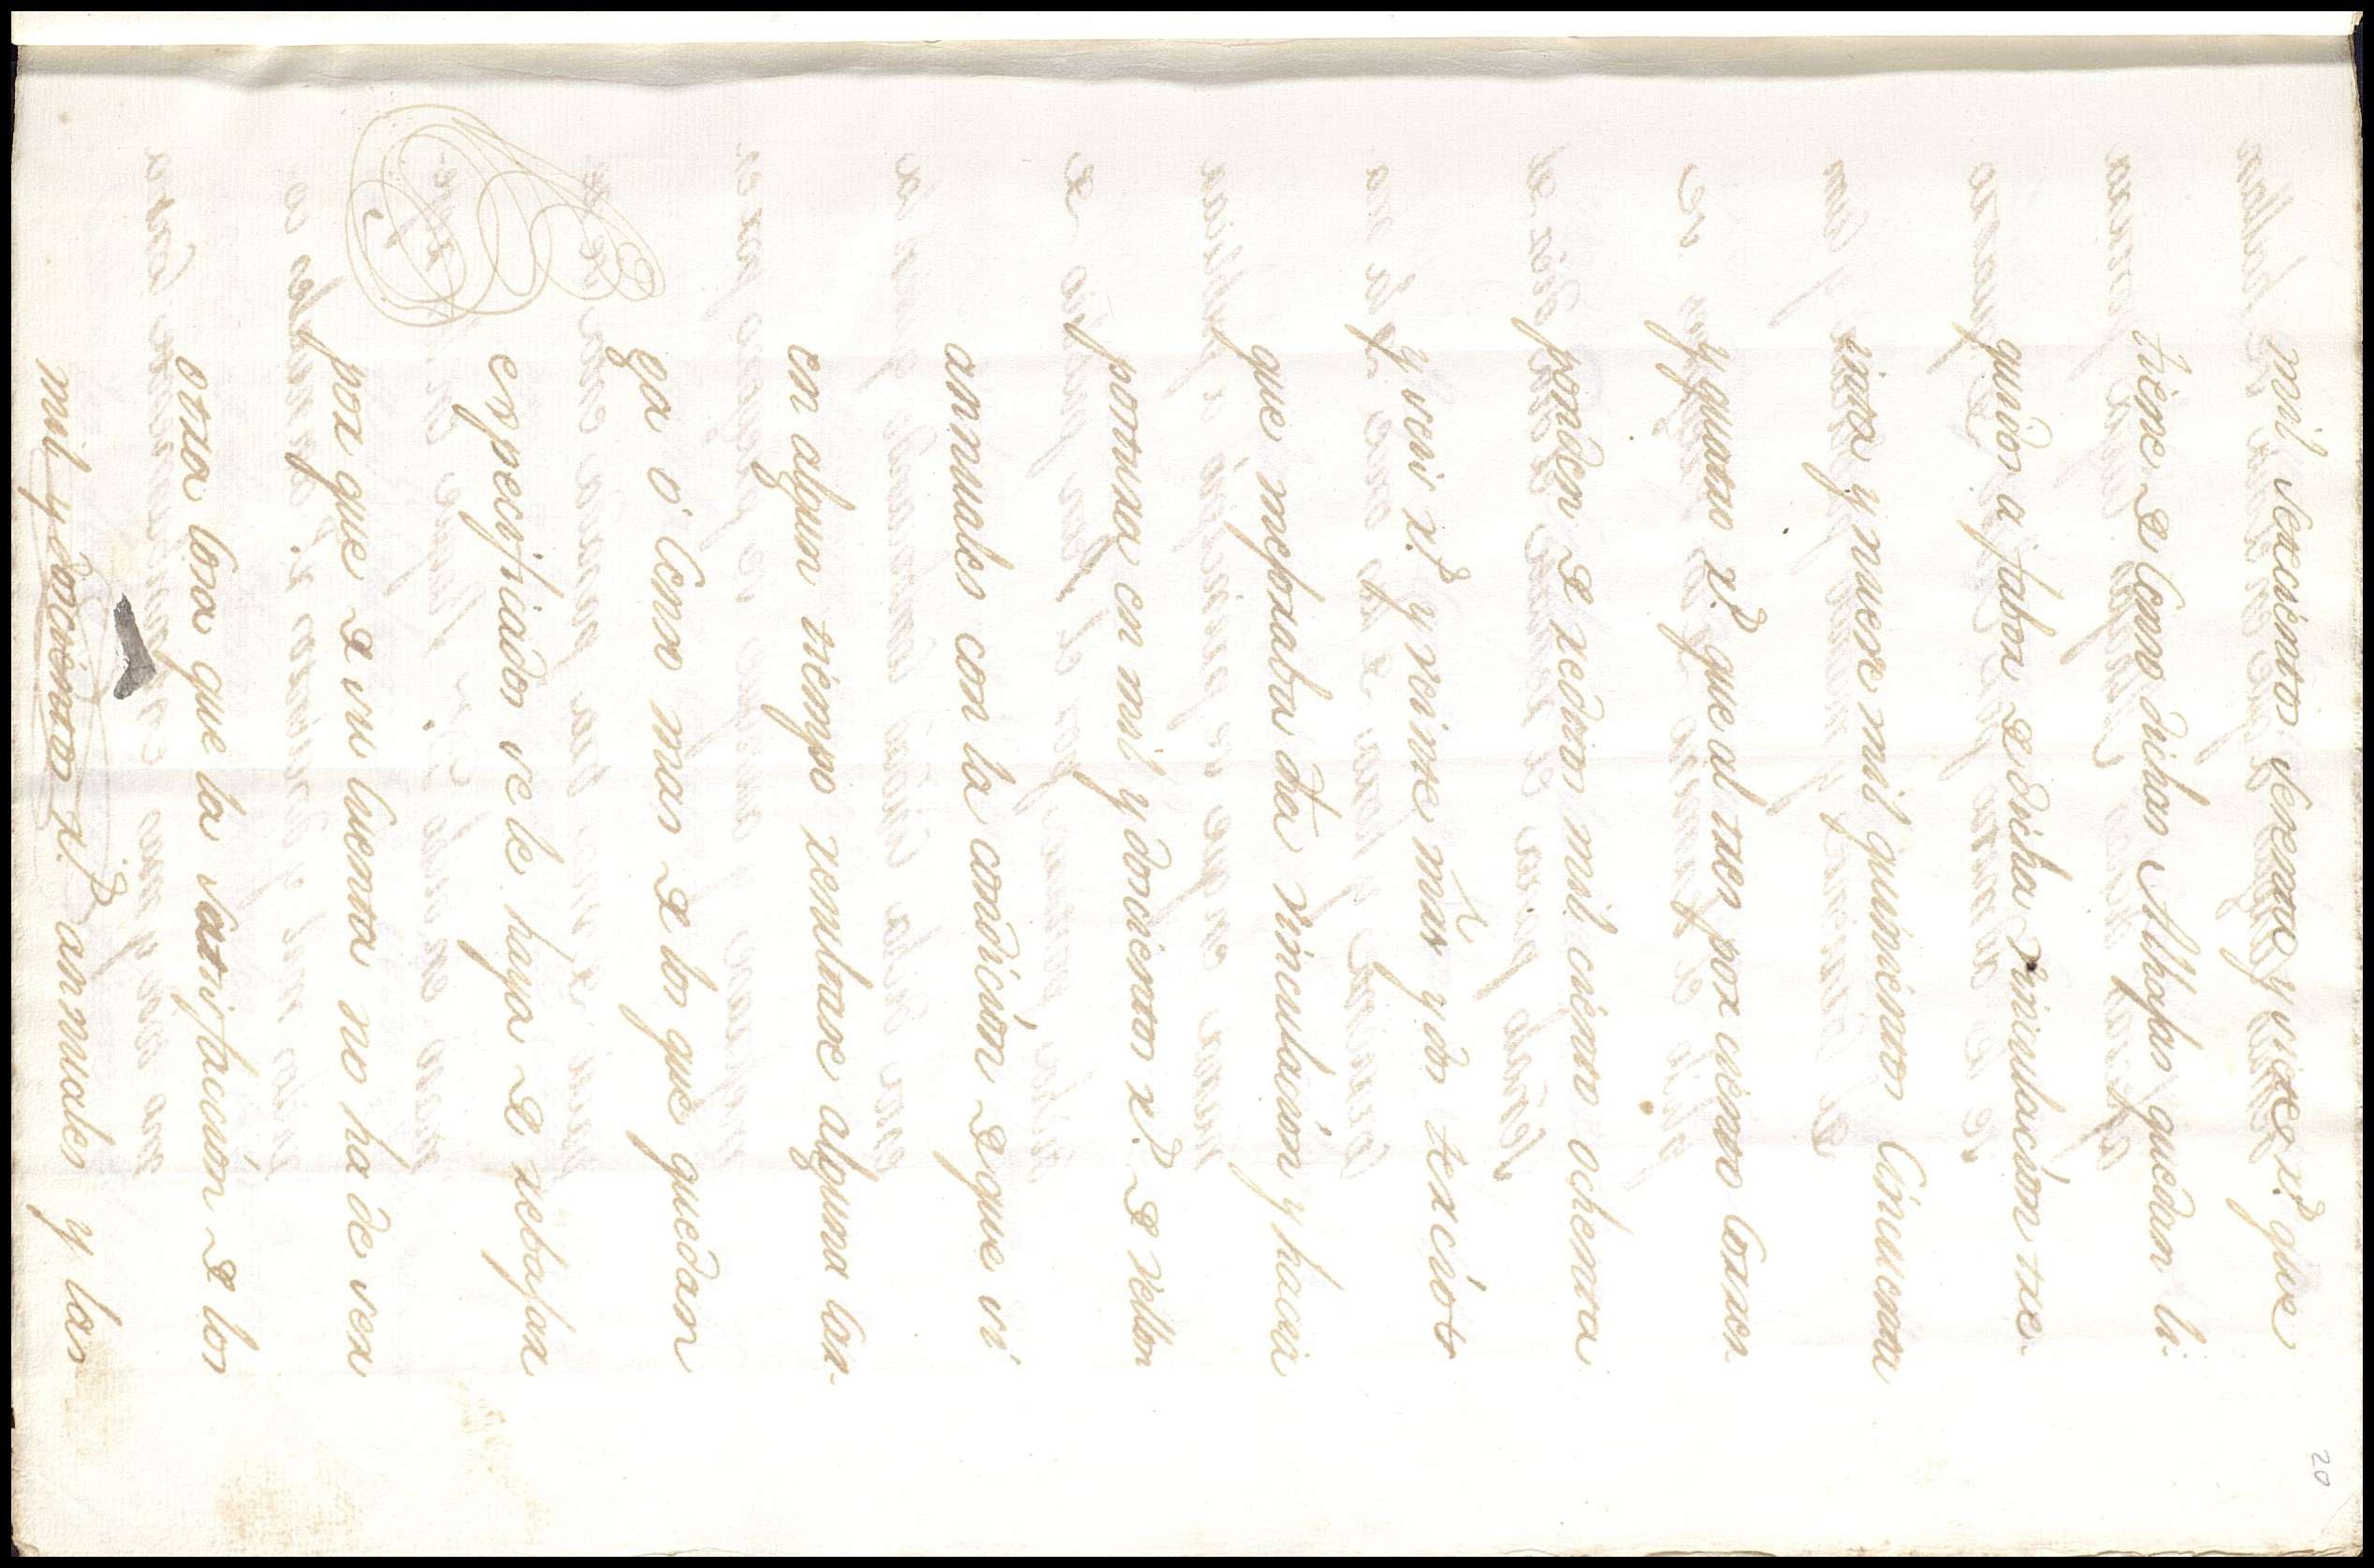 20
mil sexcientos setenta y siete r.s que
tiene de Censo dichas Alhajas quedan li-
quidos a fabor de dicha vinculacion tre-
inta y nueve mil quinientos Cincuenta
y quatro r.s que al tres por ciento Corres-
ponden de reditos mil ciento ochenta
y seis r.s y veinte mrs y dos tercios
que mejoraba dha vinculacion y hacia
postura en mil y doscientos r.s de vellon
annuales con la condicion de que si
en algun tiempo resultase alguna Car-
ga o Censo mas de los que quedan
expecificados se le haya de rebajar
por que de su Cuenta no ha de ser
otra Cosa que la satisfacion de los
mil y doscientos r.s annuales y las